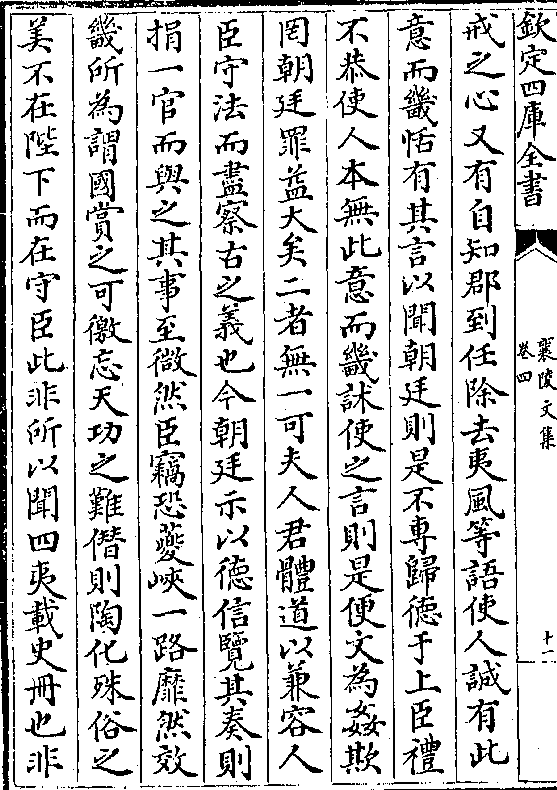 欽定四庫全書
襄陵文集
卷四
十一
戒之心又有自知郡到任除去夷風等語使人誠有此
意而畿恬有其言以聞朝廷則是不專歸德于上臣禮
不恭使人本無此意而畿訹使之言則是便文為姦欺
罔朝廷罪益大矣二者無一可夫人君體道以兼容人
臣守法而盡察古之義也今朝廷示以德信覽其奏則
捐一官而與之其事至微然臣竊恐夔峽一路靡然效
畿所為謂國賞之可徼忘天功之難僭則陶化殊俗之
美不在陛下而在守臣此非所以聞四夷載史冊也非